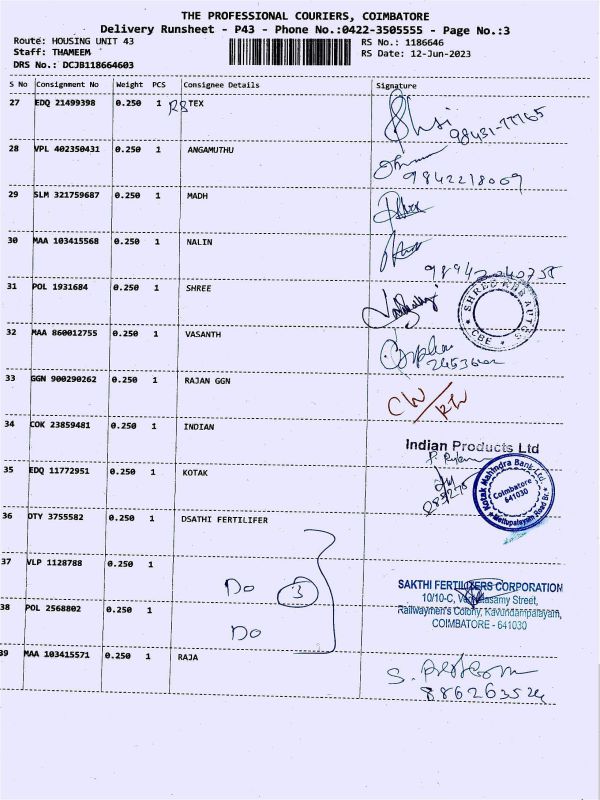 THE PROFESSIONAL COURIERS, COIMBATORE
Delivery Runsheet - P43 - Phone No.:0422-3505555 - Page No.:3
Route: HOUSING UNIT 43
RS No.: 1186646
Staff: THAMEEM
RS Date: 12-Jun-2023
DRS No.: DCJB118664603
S No Consignment No Weight PCS Consignee Details Signature
27 EDQ 21499398 0.250 1 RS TEX
98431-77765
28 VPL 402350431 0.250 1 ANGAMUTHU
9842218009
29 SLM 321759687 0.250 1 MADH
30 MAA 103415568 0.250 1 NALIN
31 POL 1931684 0.250 1 SHREE
SHREE AUTOS
CBE
32 MAA 860012755 0.250 1 VASANTH
33 GGN 900290262 0.250 1 RAJAN GGN
34 COK 23859481 0.250 1 INDIAN
Indian Products Ltd
35 EDQ 11772951 0.250 1 KOTAK
Kotak Mahindra Bank Ltd.
Coimbatore
641030
Mettupalayam Road Br.
36 DTY 3755582 0.250 1 DSATHI FERTILIFER
37 VLP 1128788 0.250 1
Do 3
SAKTHI FERTILIZERS CORPORATION
10/10-C,
Railwaymen's Colony, Kavundampalayam,
COIMBATORE - 641030
38 POL 2568802 0.250 1
Do
39 MAA 103415571 0.250 1 RAJA
S.